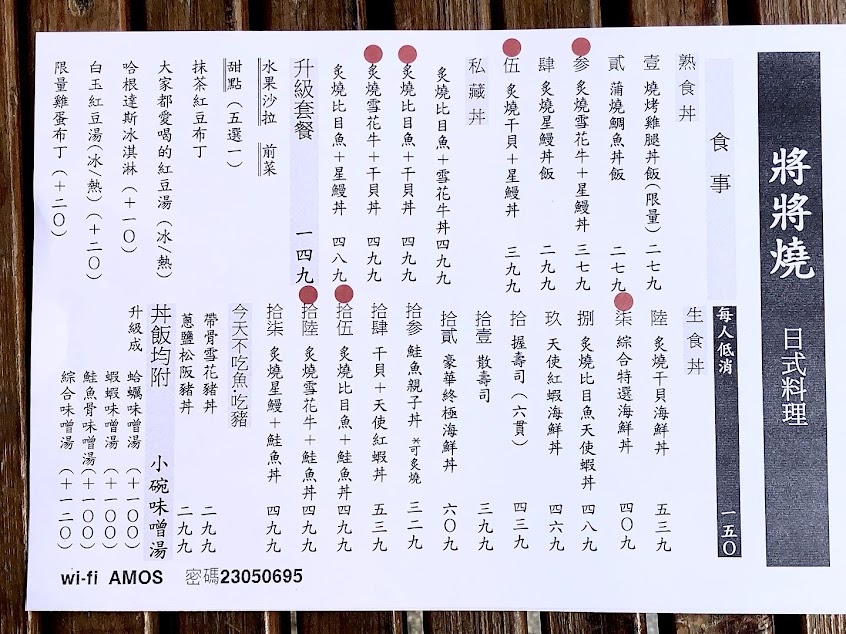 將將燒 日式料理
食事
熟食丼
壹 燒烤雞腿丼飯(限量) 二七九
貳 蒲燒鯛魚丼飯 二七九
參 炙燒雪花牛+星鰻丼 三七九
肆 炙燒星鰻丼飯 二九九
伍 炙燒干貝+星鰻丼 三九九
私藏丼
炙燒比目魚+雪花牛丼 四九九
炙燒比目魚+干貝丼 四九九
炙燒雪花牛+干貝丼 四九九
炙燒比目魚+星鰻丼 四八九
升級套餐 一四九
水果沙拉 前菜
甜點(五選一)
抹茶紅豆布丁
大家都愛喝的紅豆湯(冰/熱)
哈根達斯冰淇淋(+一〇)
白玉紅豆湯(冰/熱)(+二〇)
限量雞蛋布丁(+二〇)
每人低消 一五〇
生食丼
陸 炙燒干貝海鮮丼 五三九
柒 綜合特選海鮮丼 四〇九
捌 炙燒比目魚天使蝦丼 四八九
玖 天使紅蝦海鮮丼 四六九
拾 握壽司(六貫) 四三九
拾壹 散壽司 三九九
拾貳 豪華終極海鮮丼 六〇九
拾參 鮭魚親子丼 *可炙燒 三二九
拾肆 干貝+天使紅蝦丼 五三九
拾伍 炙燒比目魚+鮭魚丼 四九九
拾陸 炙燒雪花牛+鮭魚丼 四九九
拾柒 炙燒星鰻+鮭魚丼 四九九
今天不吃魚吃豬
帶骨雪花豬丼 二九九
蔥鹽松阪豬丼 二九九
丼飯均附 小碗味噌湯
升級成 蛤蠣味噌湯(+一〇〇)
蝦蝦味噌湯(+一〇〇)
鮭魚骨味噌湯(+一〇〇)
綜合味噌湯(+一二〇)
wi-fi AMOS 密碼23050695